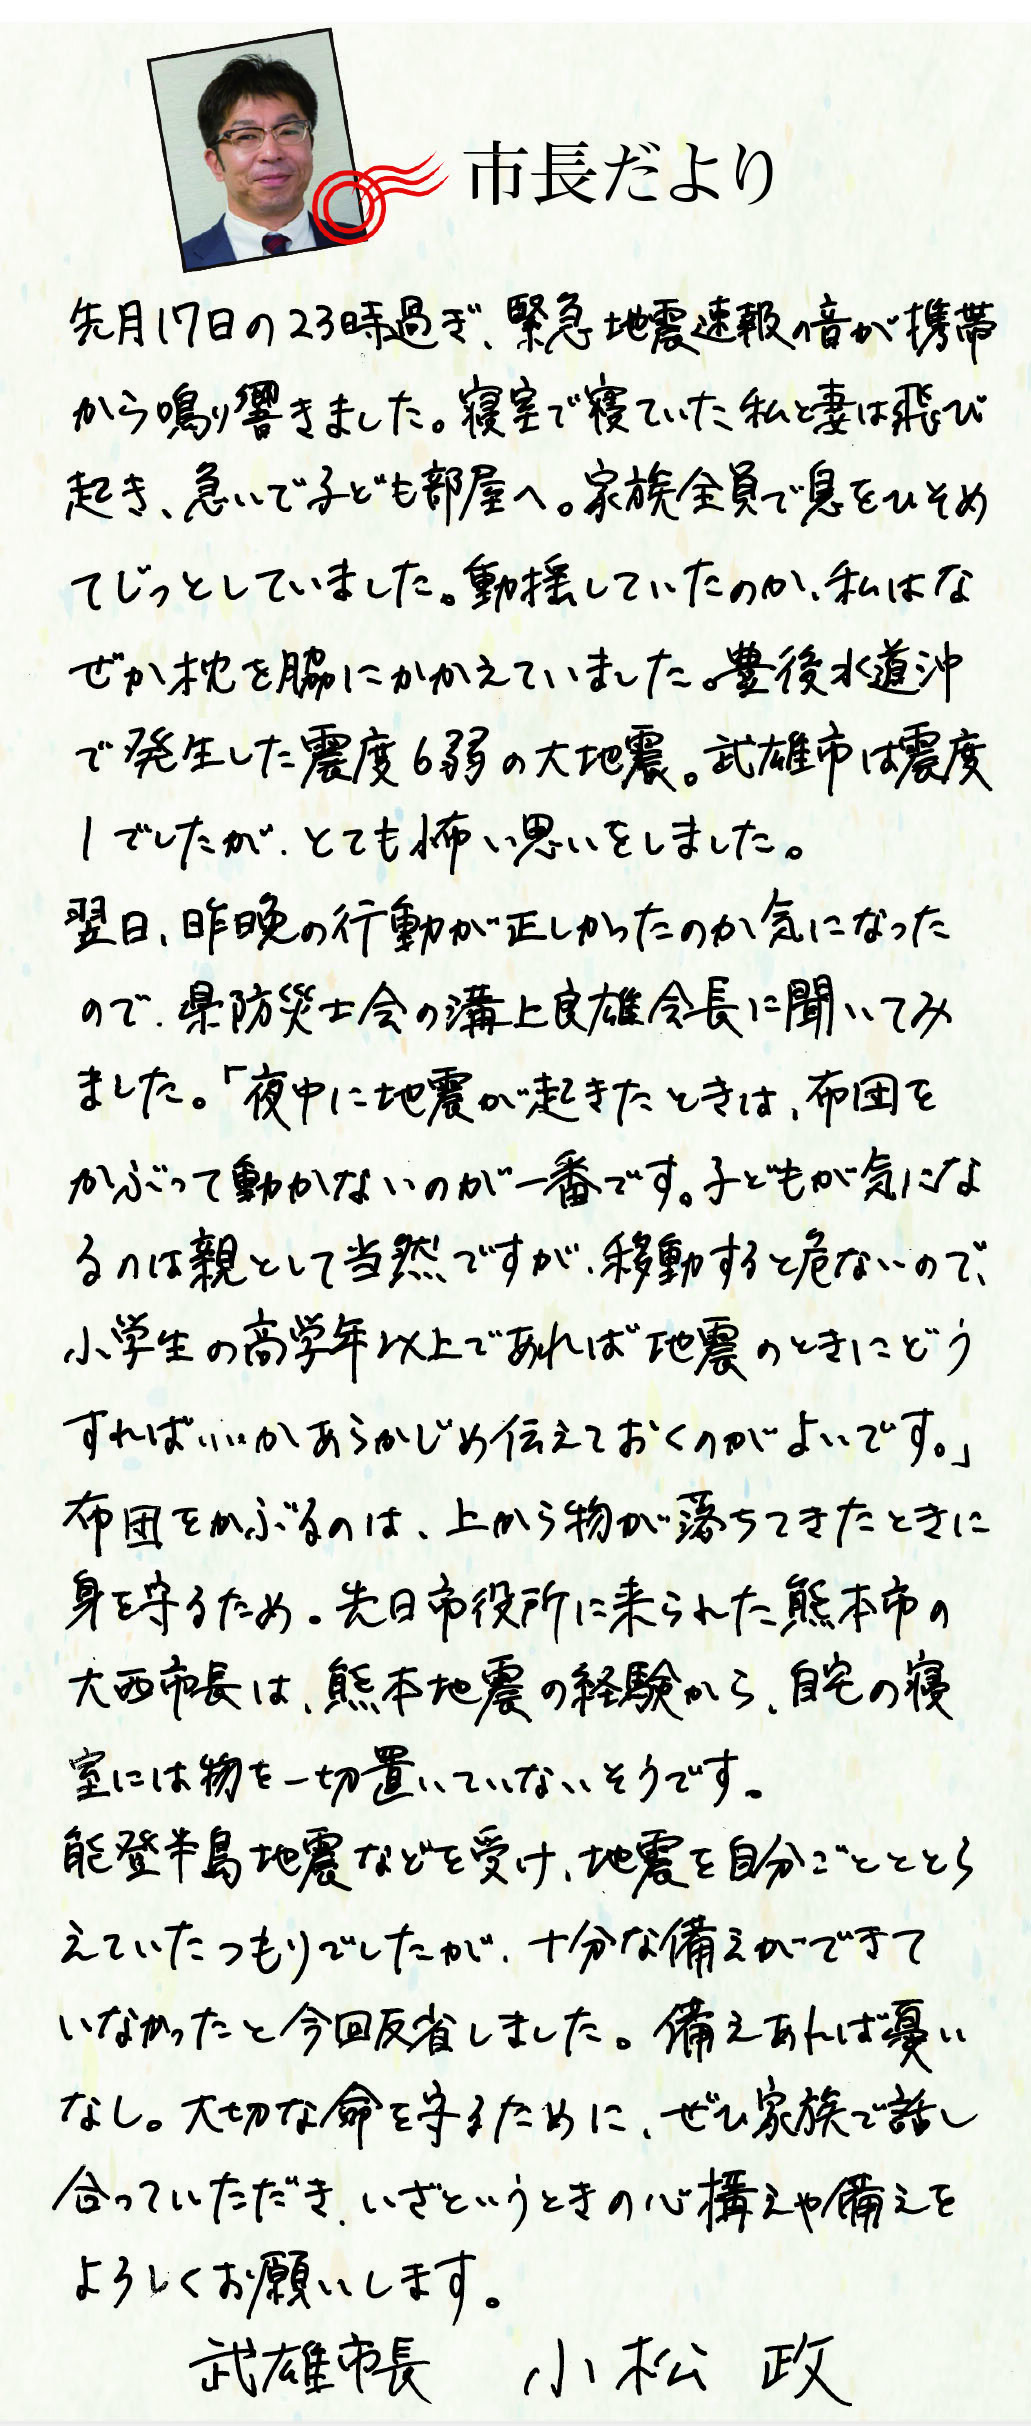 市長だより
先月17日の23時過ぎ、緊急地震速報の音が携帯
から鳴り響きました。寝室で寝ていた私と妻は飛び
起き、急いで子ども部屋へ。家族全員で息をひそめ
てじっとしていました。動揺していたのか、私はな
ぜか枕を脇にかかえていました。豊後水道沖
で発生した震度6弱の大地震。武雄市は震度
1でしたが、とても怖い思いをしました。
翌日、昨晩の行動が正しかったのか気になった
ので、県防災士会の溝上良雄会長に聞いてみ
ました。「夜中に地震が起きたときは、布団を
かぶって動かないのが一番です。子どもが気にな
るのは親として当然ですが、移動すると危ないので、
小学生の高学年以上であれば地震のときにどう
すればいいかあらかじめ伝えておくのがよいです。」
布団をかぶるのは、上から物が落ちてきたときに
身を守るため。先日市役所に来られた熊本市の
大西市長は、熊本地震の経験から、自宅の寝
室には物を一切置いていないそうです。
能登半島地震などを受け、地震を自分ごとととら
えていたつもりでしたが、十分な備えができて
いなかったと今回反省しました。備えあれば憂い
なし。大切な命を守るために、ぜひ家族で話し
合っていただき、いざというときの心構えや備えを
よろしくお願いします。
武雄市長 小松 政